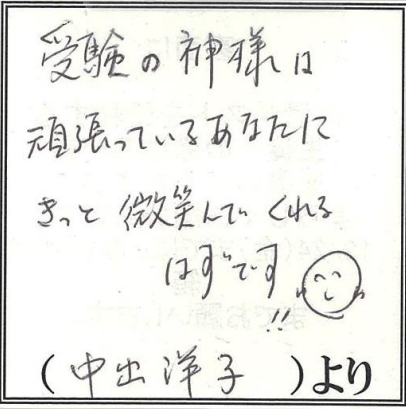 受験の神様は
頑張っているあなたに
きっと 微笑んでくれる
はずです
!!
(中出洋子)より